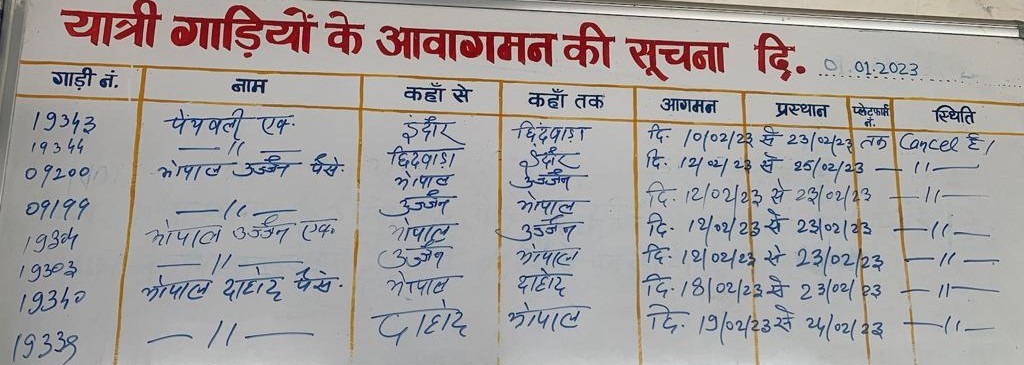 यात्री गाड़ियों के आवागमन की सूचना दि. 01.01.2023
गाड़ी नं. नाम कहाँ से कहाँ तक आगमन प्रस्थान प्लेटफार्म नं. स्थिति
19343 पेंचवली एक. इंदौर छिंदवाड़ा दि. 10/02/23 से 23/02/23 तक Cancel है।
19344 —〃— छिंदवाड़ा इंदौर दि. 12/02/23 से 25/02/23 —〃—
09200 भोपाल उज्जैन पैसे. भोपाल उज्जैन दि. 12/02/23 से 23/02/23 —〃—
09199 —〃— उज्जैन भोपाल दि. 12/02/23 से 23/02/23 —〃—
19304 भोपाल उज्जैन एक. भोपाल उज्जैन दि. 12/02/23 से 23/02/23 —〃—
19303 —〃— उज्जैन भोपाल
19340 भोपाल दाहोद पैसे. भोपाल दाहोद दि. 18/02/23 से 23/02/23 —〃—
19339 —〃— दाहोद भोपाल दि. 19/02/23 से 24/02/23 —〃—